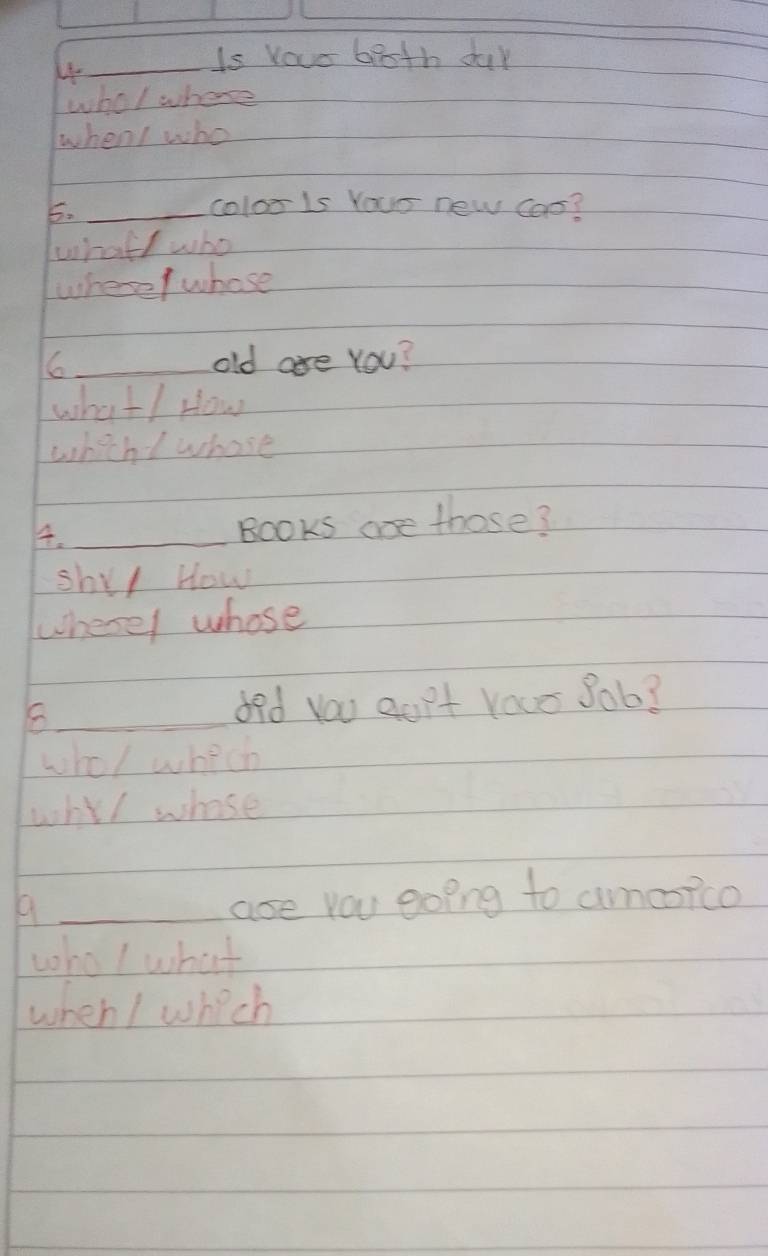 4. ____ Is your birth day
who / where
when / who
5. ____ color is your new car?
what / who
where / whose
6 ____ old are you?
what / How
which / whose
7. ____ Books are those?
shy / How
where / whose
8 ____ did you quit your Job?
who / which
why / whose
9 ____ are you going to amarica
who / what
when / which